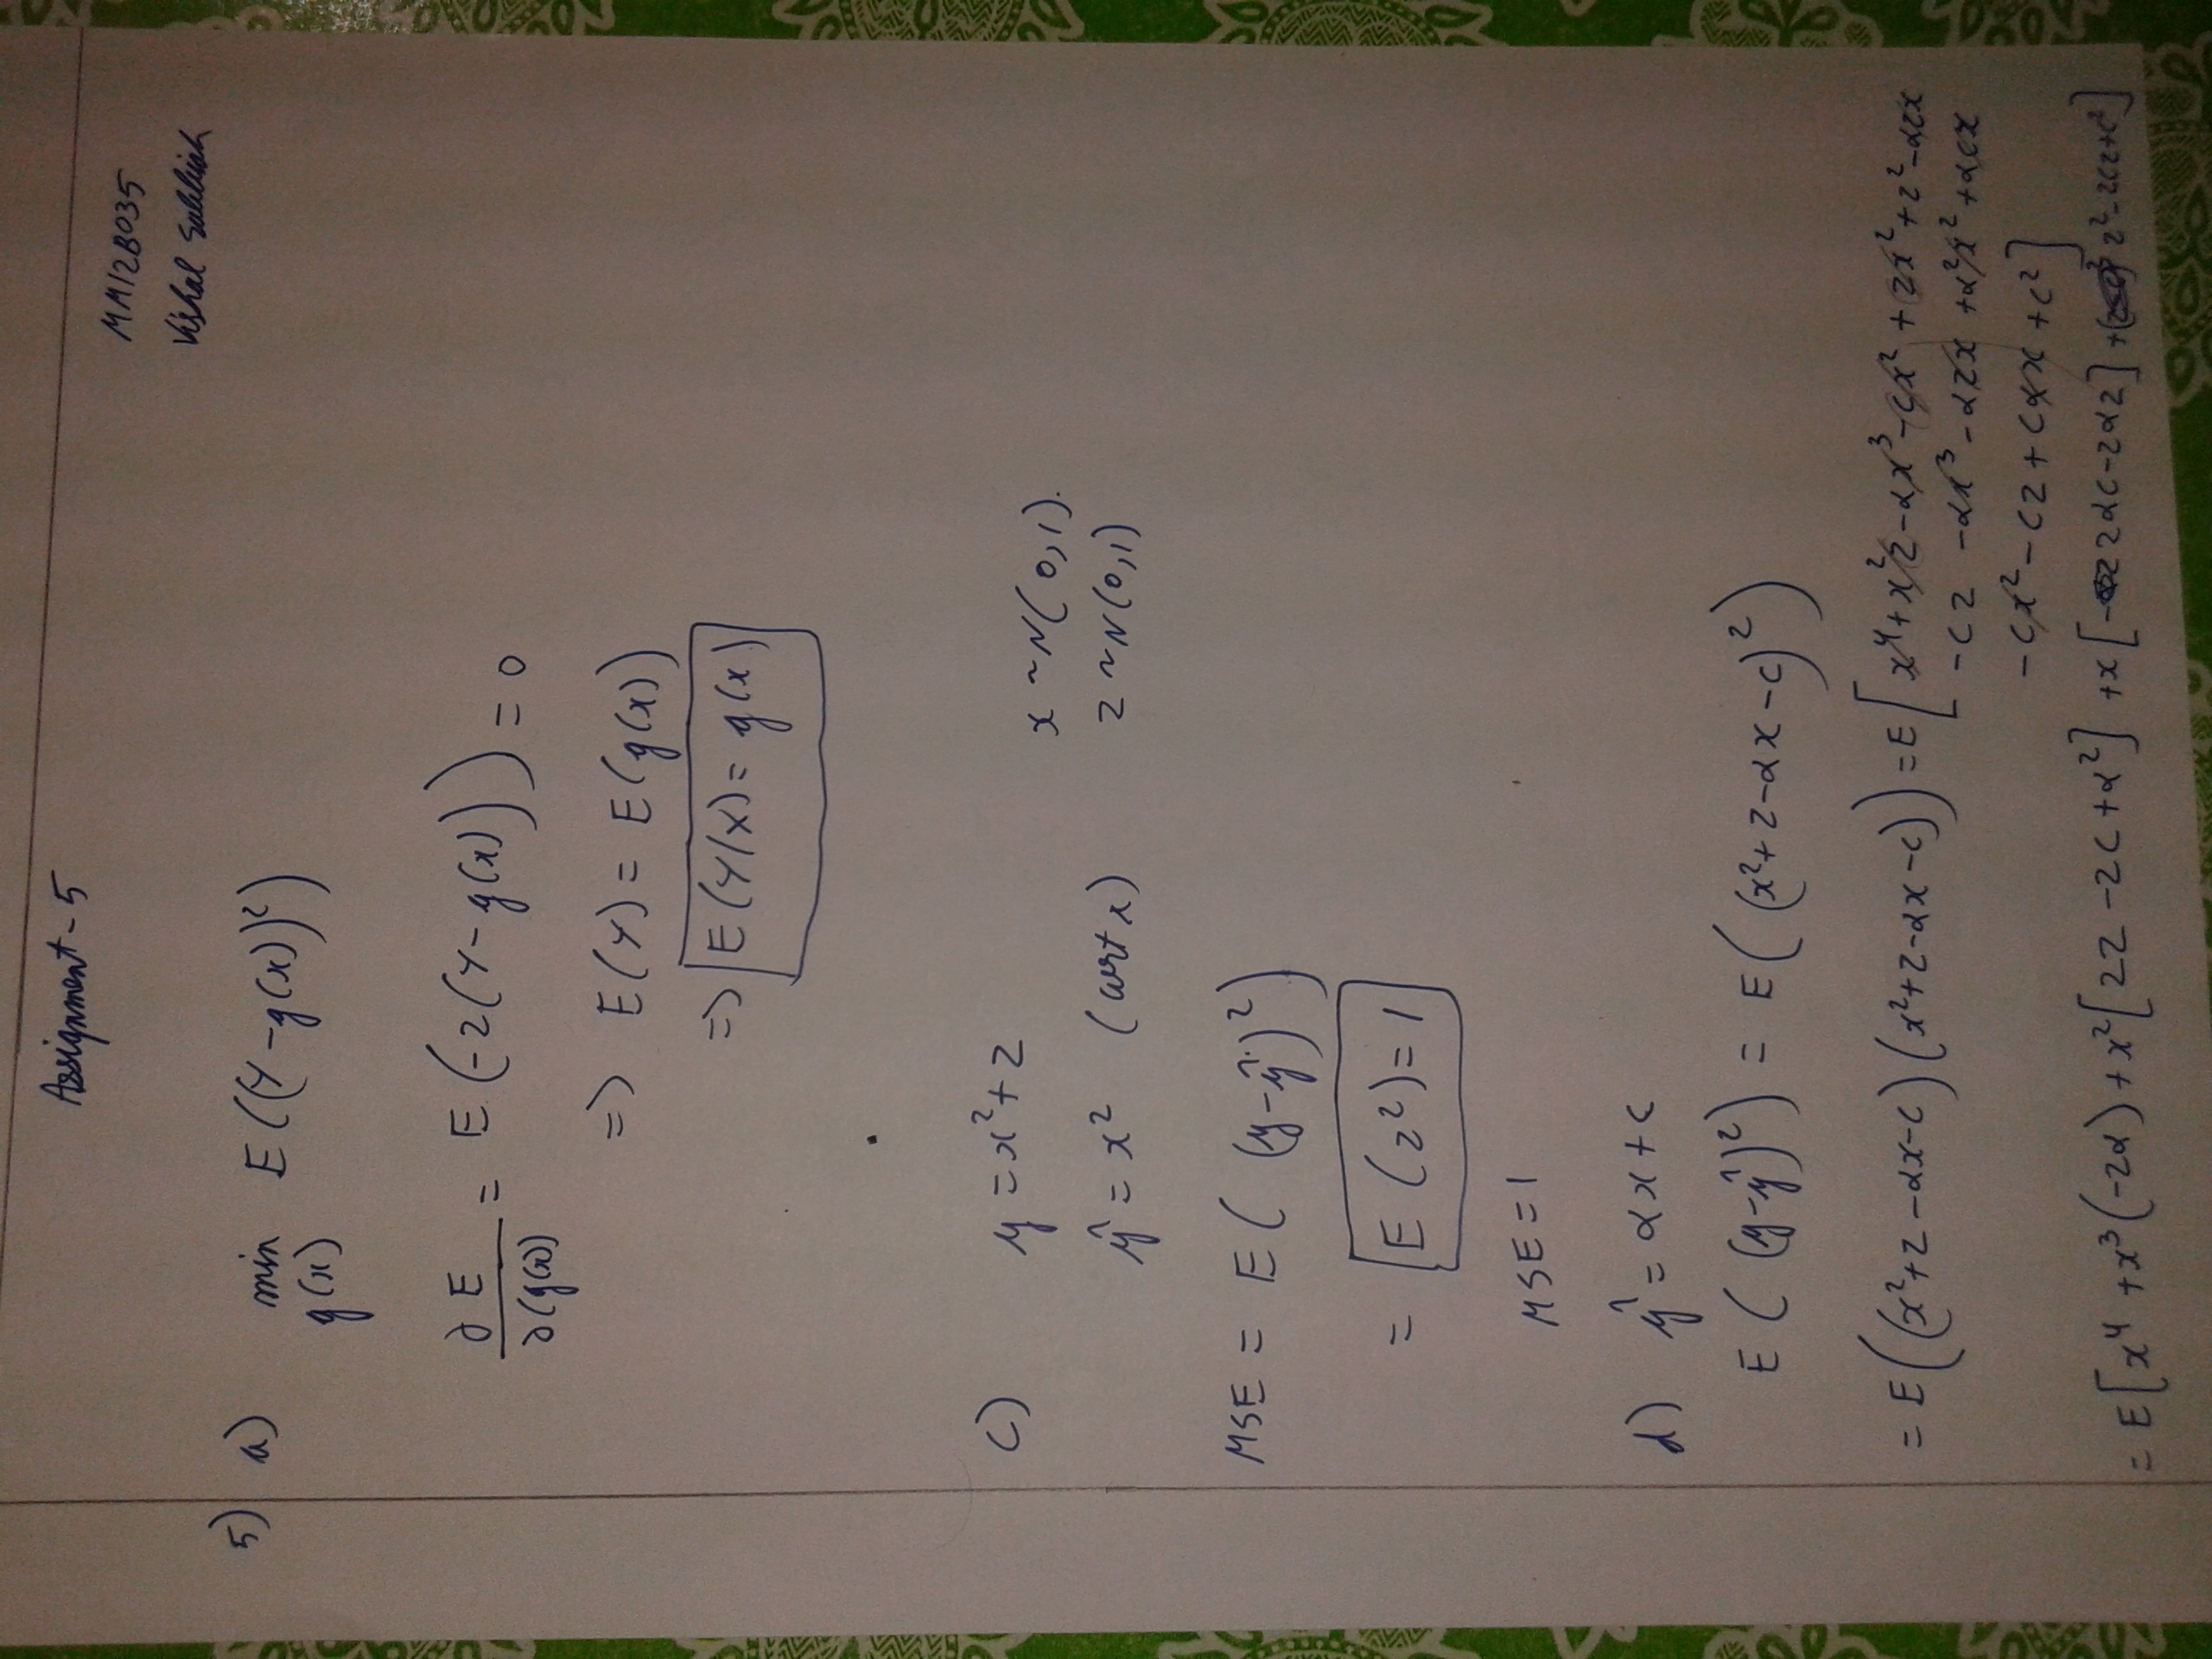 Assignment-5
MM12B035
Vishal Subbiah
5) a) min E((Y-g(x))²)
g(x)
∂E/∂(g(x)) = E(-2(Y-g(x))) = 0
=> E(Y) = E(g(x))
=> E(Y/X) = g(x)
c) y = x²+z x ~ N(0,1).
ŷ = x² (wrt x) z ~ N(0,1)
MSE = E((y-ŷ)²)
= E(z²) = 1
MSE = 1
d) ŷ = αx + c
E((y-ŷ)²) = E((x²+z-αx-c)²)
= E((x²+z-αx-c)(x²+z-αx-c)) = E[x⁴+x²z-αx³-cx²+zx²+z²-αzx
-cz-αx³-αzx+α²x²+αcx
-cx²-cz+cαx+c²]
= E[x⁴+x³(-2α)+x²[2z-2c+α²]+x[2αc-2αz]+z²-2cz+c²]